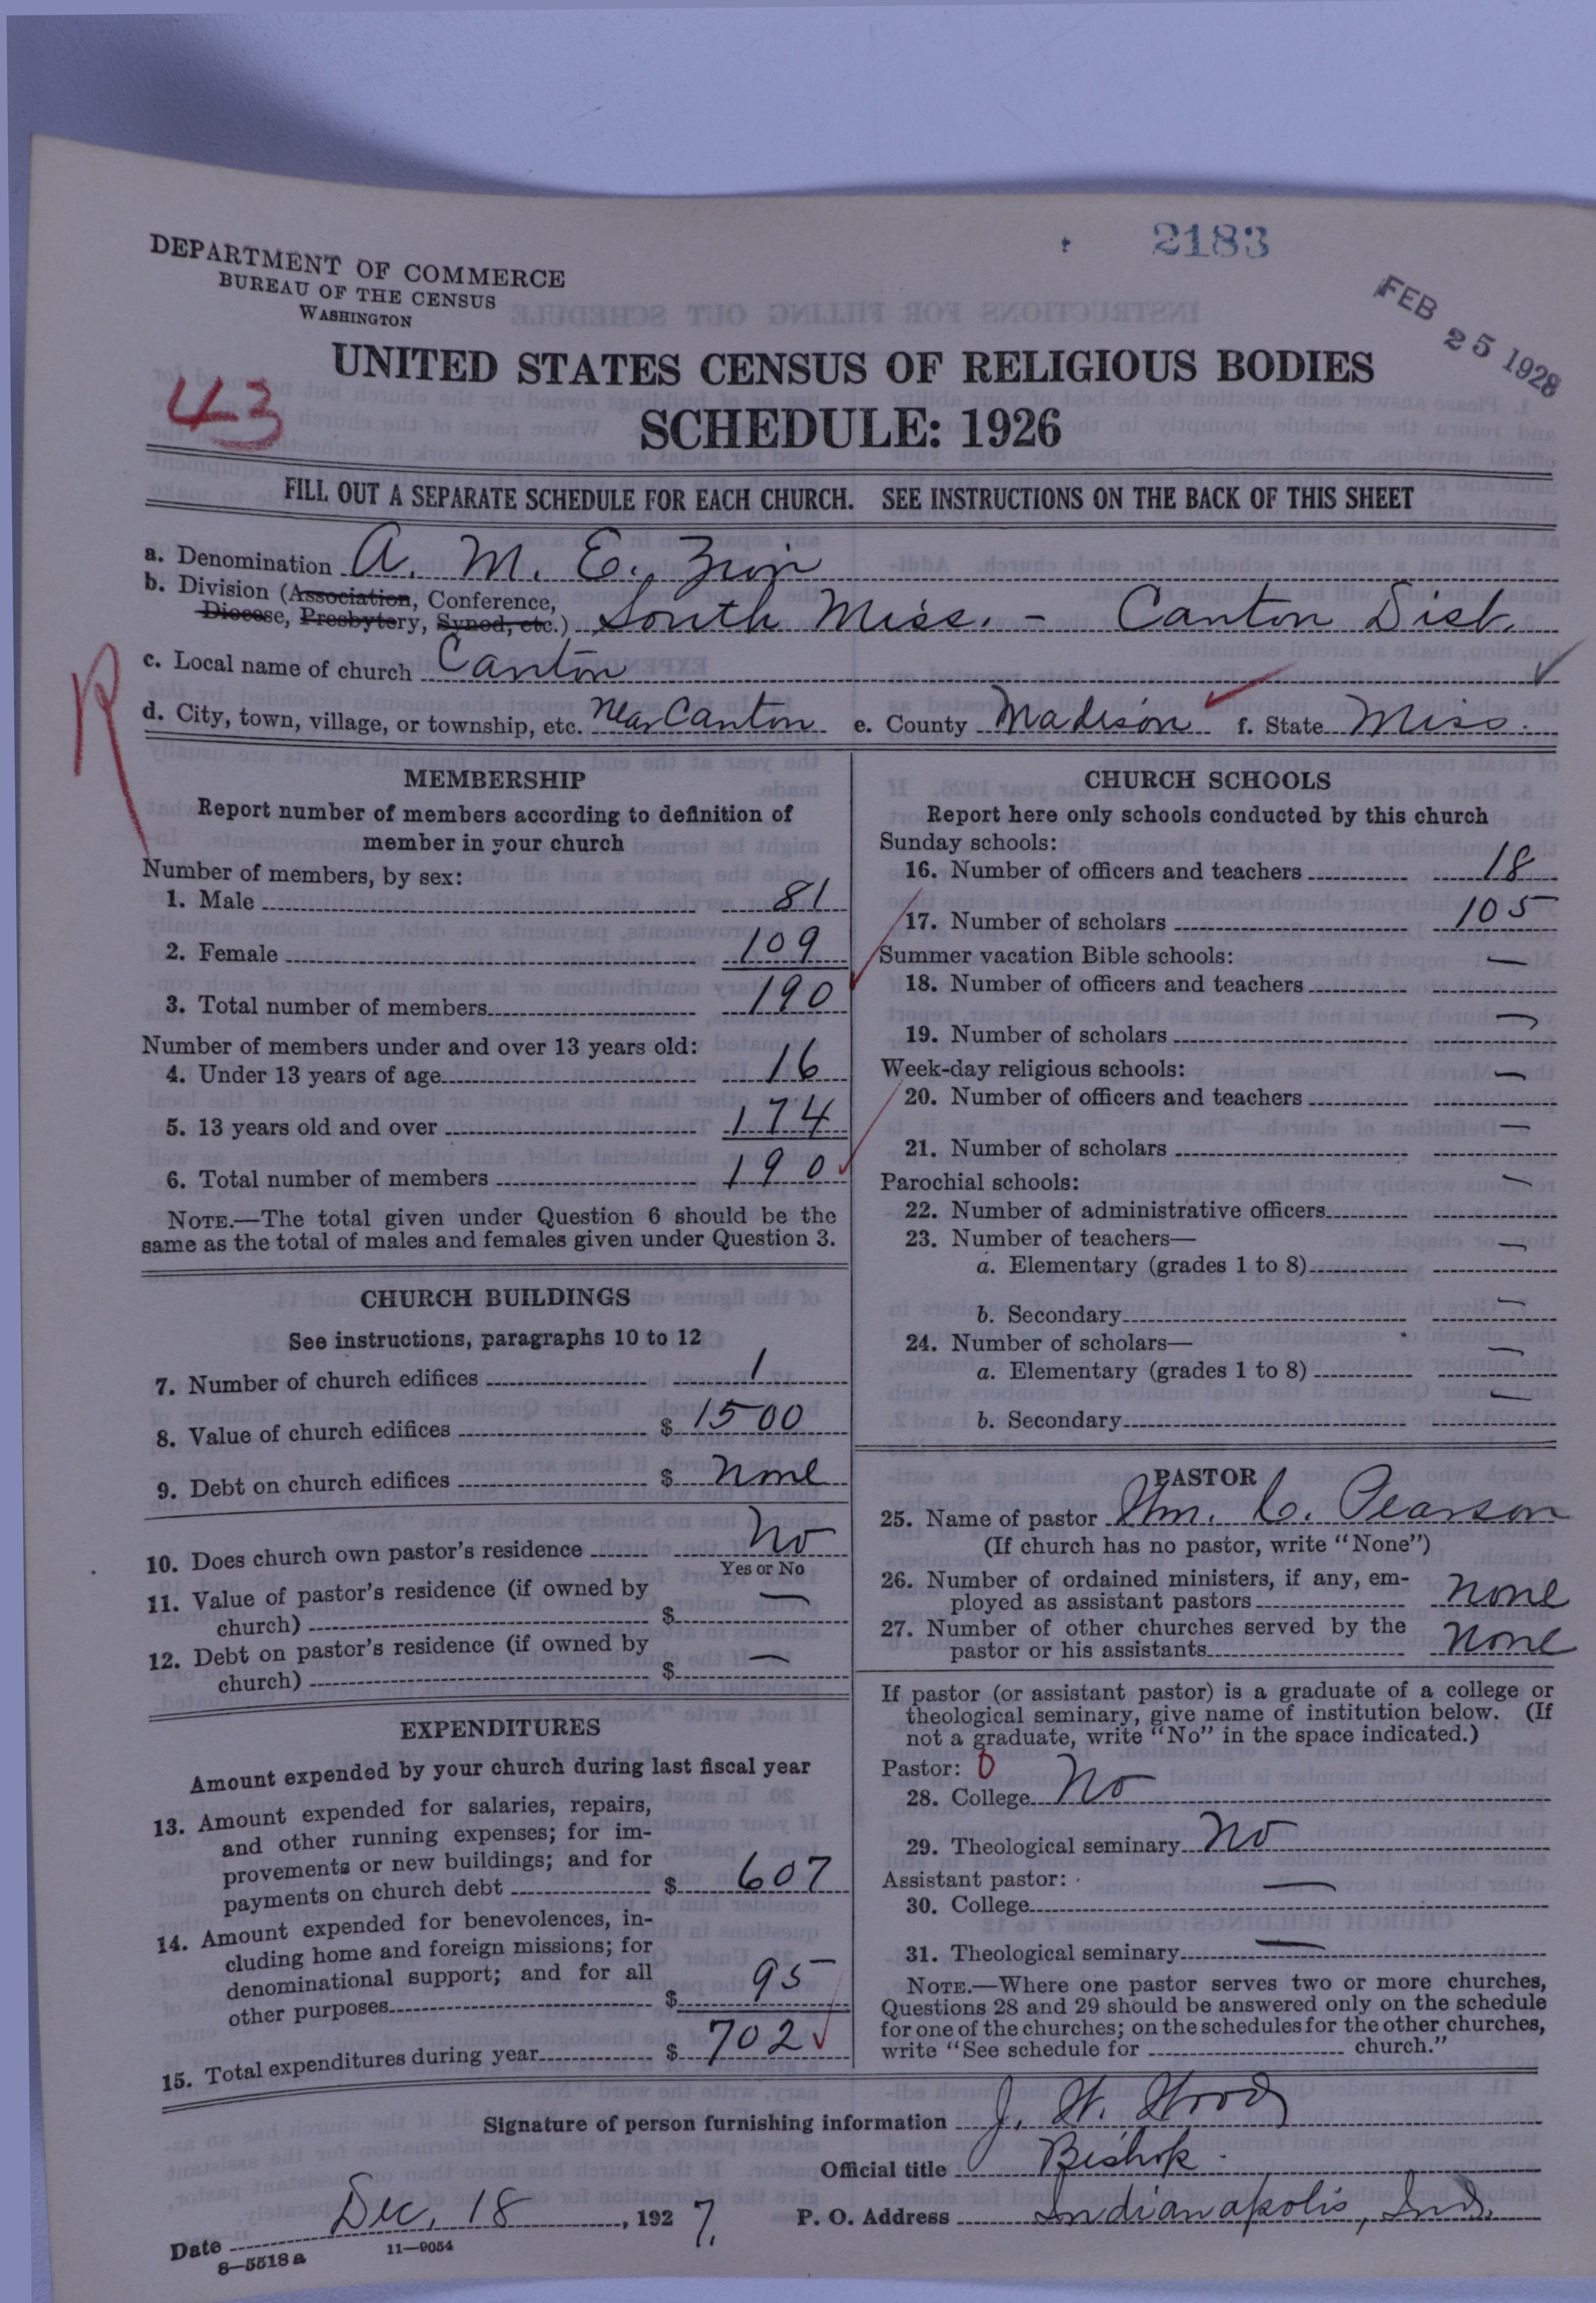 2183
FEB 25 1928
DEPARTMENT OF COMMERCE
BUREAU OF THE CENSUS
WASHINGTON
UNITED STATES CENSUS OF RELIGIOUS BODIES
43
SCHEDULE: 1926
FILL OUT A SEPARATE SCHEDULE FOR EACH CHURCH. SEE INSTRUCTIONS ON THE BACK OF THIS SHEET
a. Denomination A. M. E. Zion
b. Division (Association, Conference,
Diocese, Presbytery, Synod, etc.) South Miss. - Canton Dist.
R
c. Local name of church Canton
d. City, town, village, or township, etc. Near Canton e. County Madison f. State Miss.
MEMBERSHIP
Report number of members according to definition of
member in your church
Number of members, by sex:
1. Male 81
2. Female 109
3. Total number of members 190
Number of members under and over 13 years old:
4. Under 13 years of age 16
5. 13 years old and over 174
6. Total number of members 190
NOTE.—The total given under Question 6 should be the
same as the total of males and females given under Question 3.
CHURCH BUILDINGS
See instructions, paragraphs 10 to 12
7. Number of church edifices 1
8. Value of church edifices $ 1500
9. Debt on church edifices $ none
10. Does church own pastor's residence No
Yes or No
11. Value of pastor's residence (if owned by
church) $ —
12. Debt on pastor's residence (if owned by
church) $ —
EXPENDITURES
Amount expended by your church during last fiscal year
13. Amount expended for salaries, repairs,
and other running expenses; for im-
provements or new buildings; and for
payments on church debt $ 607
14. Amount expended for benevolences, in-
cluding home and foreign missions; for
denominational support; and for all
other purposes $ 95
15. Total expenditures during year $ 702
CHURCH SCHOOLS
Report here only schools conducted by this church
Sunday schools:
16. Number of officers and teachers 18
17. Number of scholars 105
Summer vacation Bible schools:
18. Number of officers and teachers —
19. Number of scholars —
Week-day religious schools:
20. Number of officers and teachers —
21. Number of scholars —
Parochial schools:
22. Number of administrative officers —
23. Number of teachers—
a. Elementary (grades 1 to 8) —
b. Secondary —
24. Number of scholars—
a. Elementary (grades 1 to 8) —
b. Secondary —
PASTOR
25. Name of pastor Wm. C. Pearson
(If church has no pastor, write "None")
26. Number of ordained ministers, if any, em-
ployed as assistant pastors none
27. Number of other churches served by the
pastor or his assistants none
If pastor (or assistant pastor) is a graduate of a college or
theological seminary, give name of institution below. (If
not a graduate, write "No" in the space indicated.)
Pastor: 0
28. College No
29. Theological seminary No
Assistant pastor:
30. College —
31. Theological seminary —
NOTE.—Where one pastor serves two or more churches,
Questions 28 and 29 should be answered only on the schedule
for one of the churches; on the schedules for the other churches,
write "See schedule for church."
Signature of person furnishing information J. W. Wood
Official title Bishop.
Date Dec. 18, 1927. P. O. Address Indianapolis, Ind.
8—5518 a 11—9054